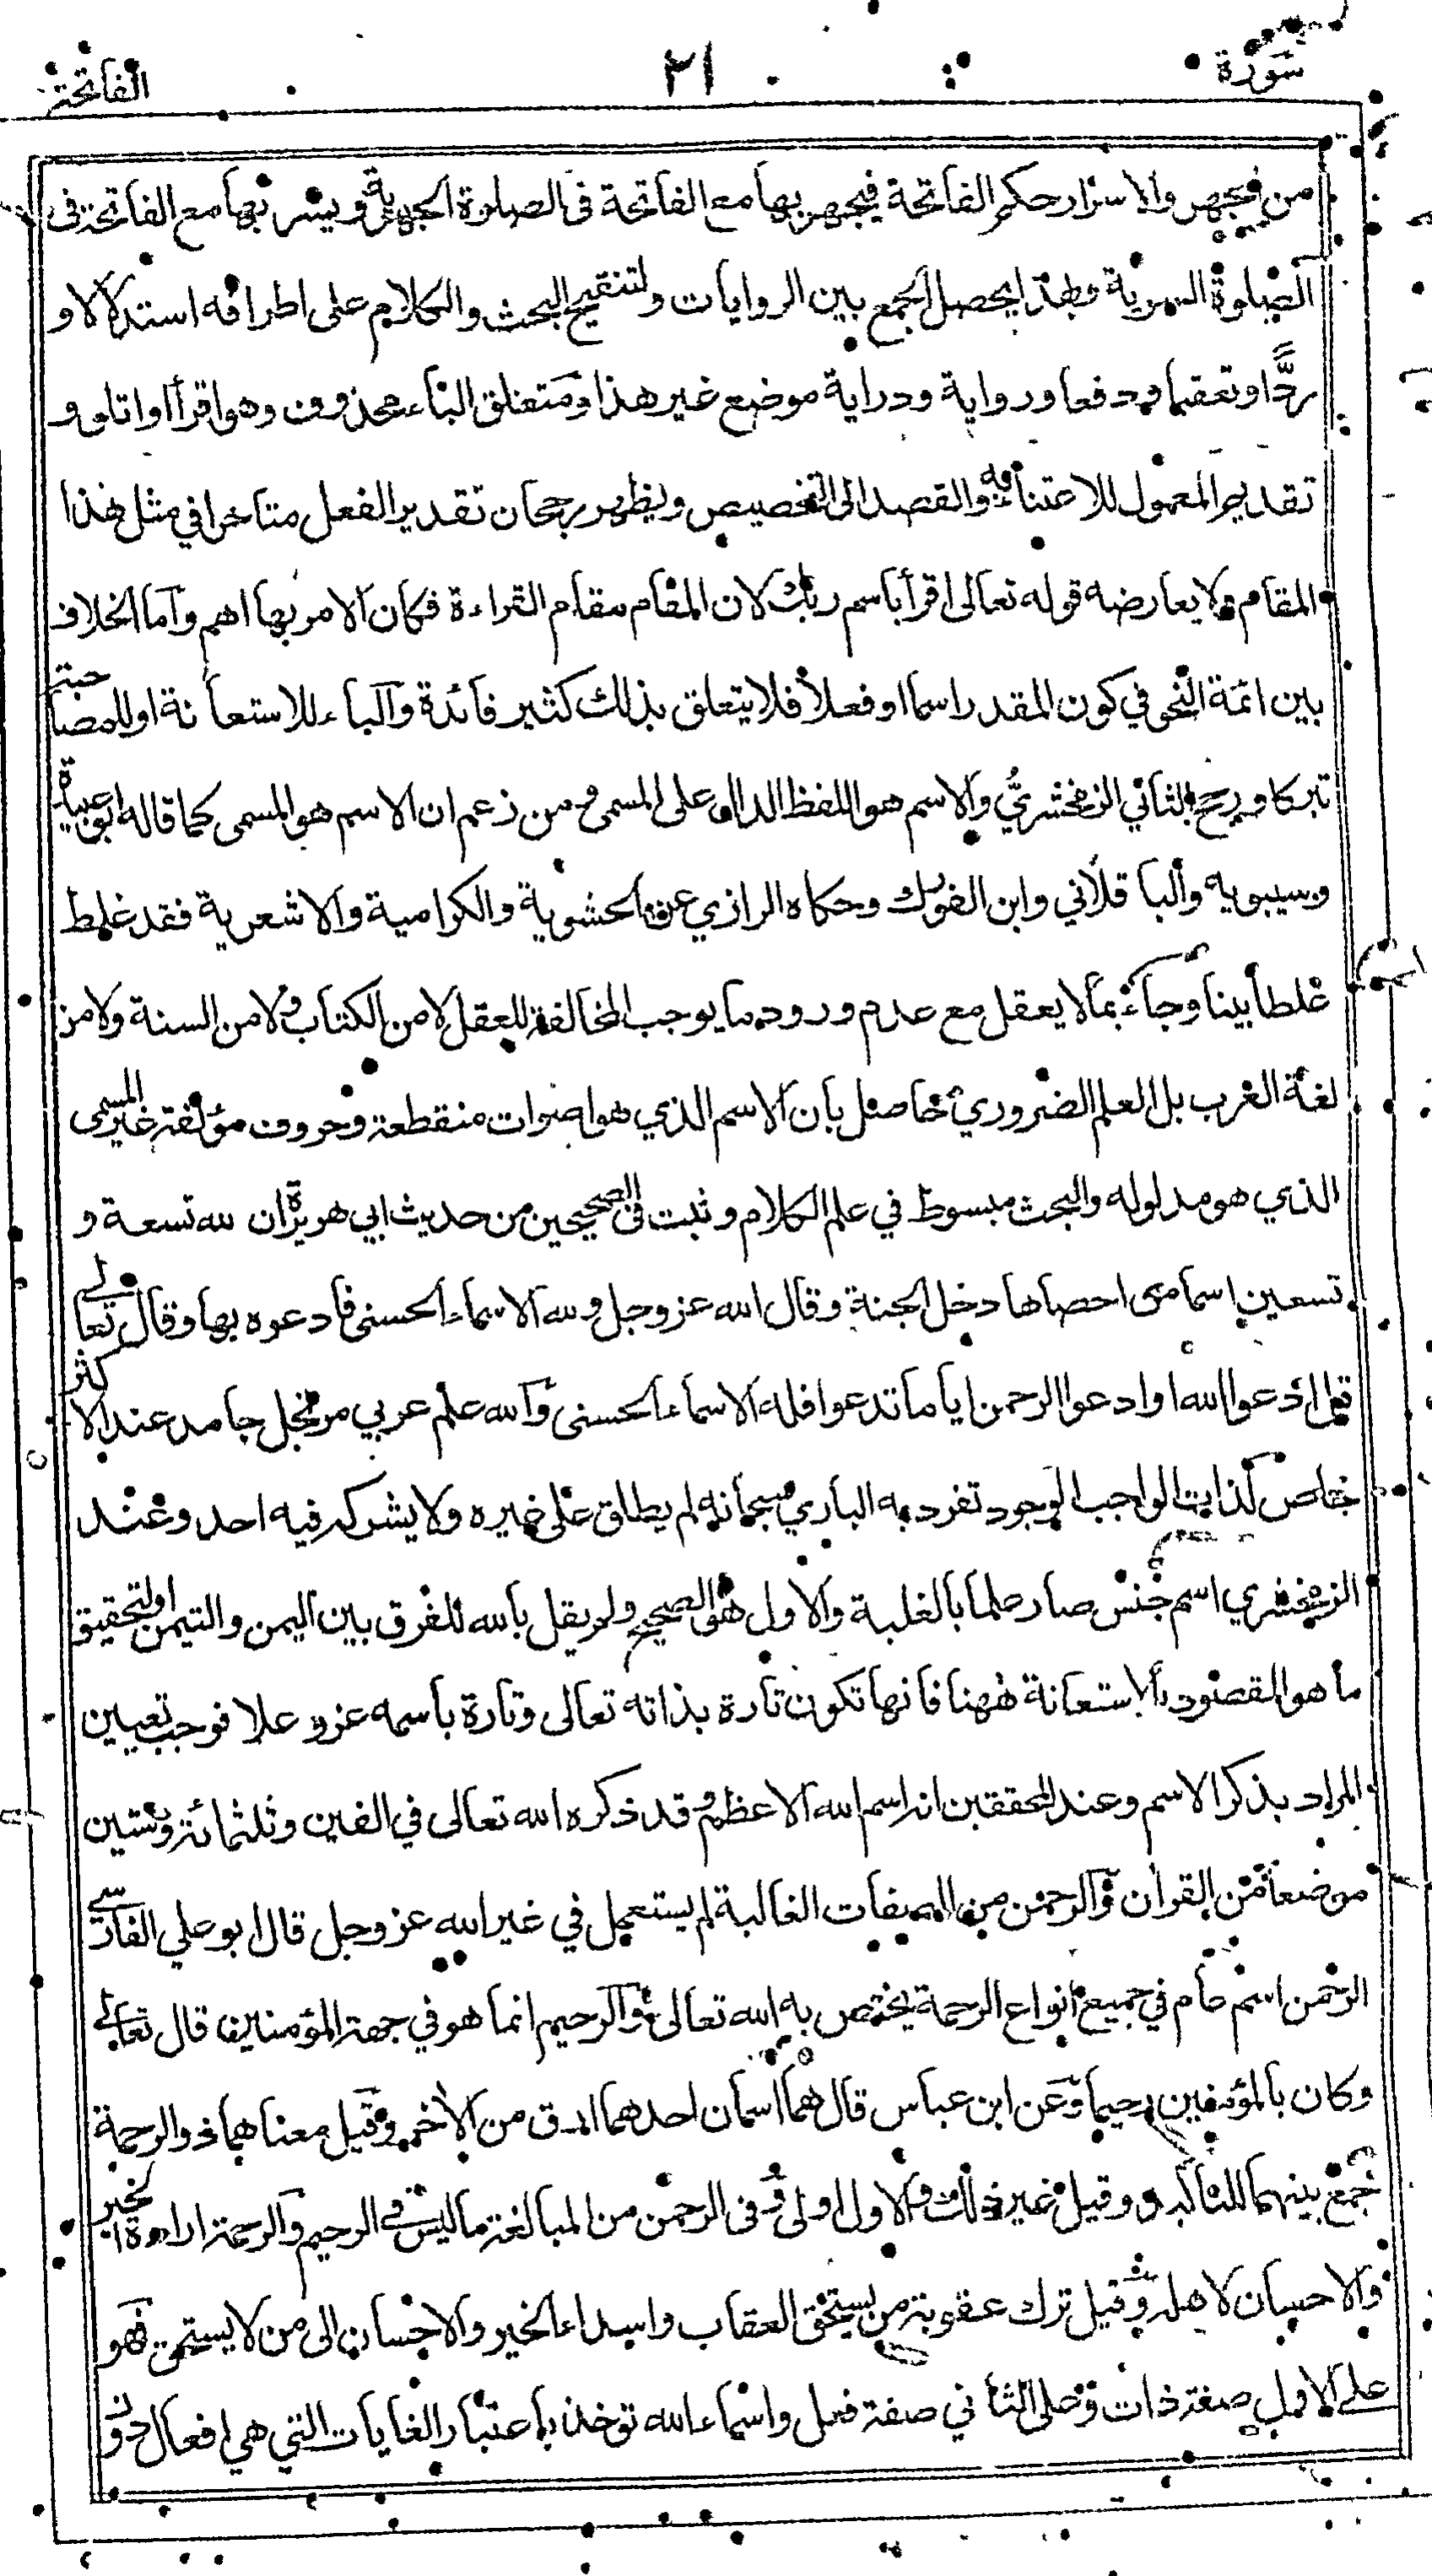 سورة ٢١ الفاتحة
من الجهر والاسرار حكم الفاتحة فيجهر بها مع الفاتحة فى الصلوة الجهرية ويسر بها مع الفاتحة فى
الصلوة السرية وبهذا يحصل الجمع بين الروايات ولتنقيح البحث والكلام على اطرافه استدلالا و
ردًّا وتعقبا ودفعا ورواية ودراية موضع غير هذا ومتعلق الباء محذوف وهو اقرأ او اتلو و
تقديم المعمول للاعتناء به والقصد الى التخصيص ويظهر رجحان تقدير الفعل متاخرا في مثل هذا
المقام ولا يعارضه قوله تعالى اقرأ باسم ربك لان المقام مقام القراءة فكان الامر بها اهم وأما الخلاف
بين ائمة النحو في كون المقدر اسما او فعلا فلا يتعلق بذلك كثير فائدة والباء للاستعانة او للمصاحبة
تبركا ورجح الثاني الزمخشريّ والاسم هو اللفظ الدال على المسمى ومن زعم ان الاسم هو المسمى كما قاله ابو عبيدة
وسيبويه والباقلاني وابن الفورك وحكاه الرازي عن الحشوية والكرامية والاشعرية فقد غلط
غلطا بينا وجاء بما لا يعقل مع عدم ورود ما يوجب المخالفة للعقل لا من الكتاب ولا من السنة ولا من
لغة العرب بل العلم الضروري حاصل بان الاسم الذي هو اصوات منقطعة وحروف مؤلفة غير المسمى
الذي هو مدلوله والبحث مبسوط في علم الكلام وثبت فى الصحيحين من حديث ابي هريرة ان لله تسعة و
تسعين اسما من احصاها دخل الجنة وقال الله عز وجل ولله الاسماء الحسنى فادعوه بها وقال تعالے
قل ادعوا الله او ادعوا الرحمن ايا ما تدعوا فله الاسماء الحسنى والله علم عربي مرتجل جامد عند الاكثر
خاص لذات الواجب الوجود تفرد به الباري سبحانه لم يطلق على غيره ولا يشركه فيه احد وعند
الزمخشري اسم جنس صار علما بالغلبة والاول هو الصحيح ولم يقل بالله للفرق بين اليمن والتيمن او لتحقيق
ما هو المقصود بالاستعانة ههنا فانها تكون تارة بذاته تعالى وتارة باسمه عز وعلا فوجب تعيين
المراد بذكر الاسم وعند المحققين انه اسم الله الاعظم وقد ذكره الله تعالى في الفين وثلثمائة وستين
موضعا من القرآن والرحمن من الصفات الغالبة لم يستعمل في غير الله عز وجل قال ابو علي الفارسے
الرحمن اسم عام في جميع انواع الرحمة يختص به الله تعالى والرحيم انما هو في جهة المؤمنين قال تعالے
وكان بالمؤمنين رحيما وعن ابن عباس قال هما اسمان احدهما ارق من الاخر وقيل معناهما ذو الرحمة
جمع بينهما للتاكيد وقيل غير ذلك والاول اولى وفى الرحمن من المبالغة ما ليس فے الرحيم والرحمة ارادة الخير
والاحسان لاهله وقيل ترك عقوبة من يستحق العقاب واسداء الخير والاحسان الى من لا يستحق فهو
علے الاول صفة ذات وعلى الثاني صفة فعل واسماء الله توخذ باعتبار الغايات التي هي افعال دون